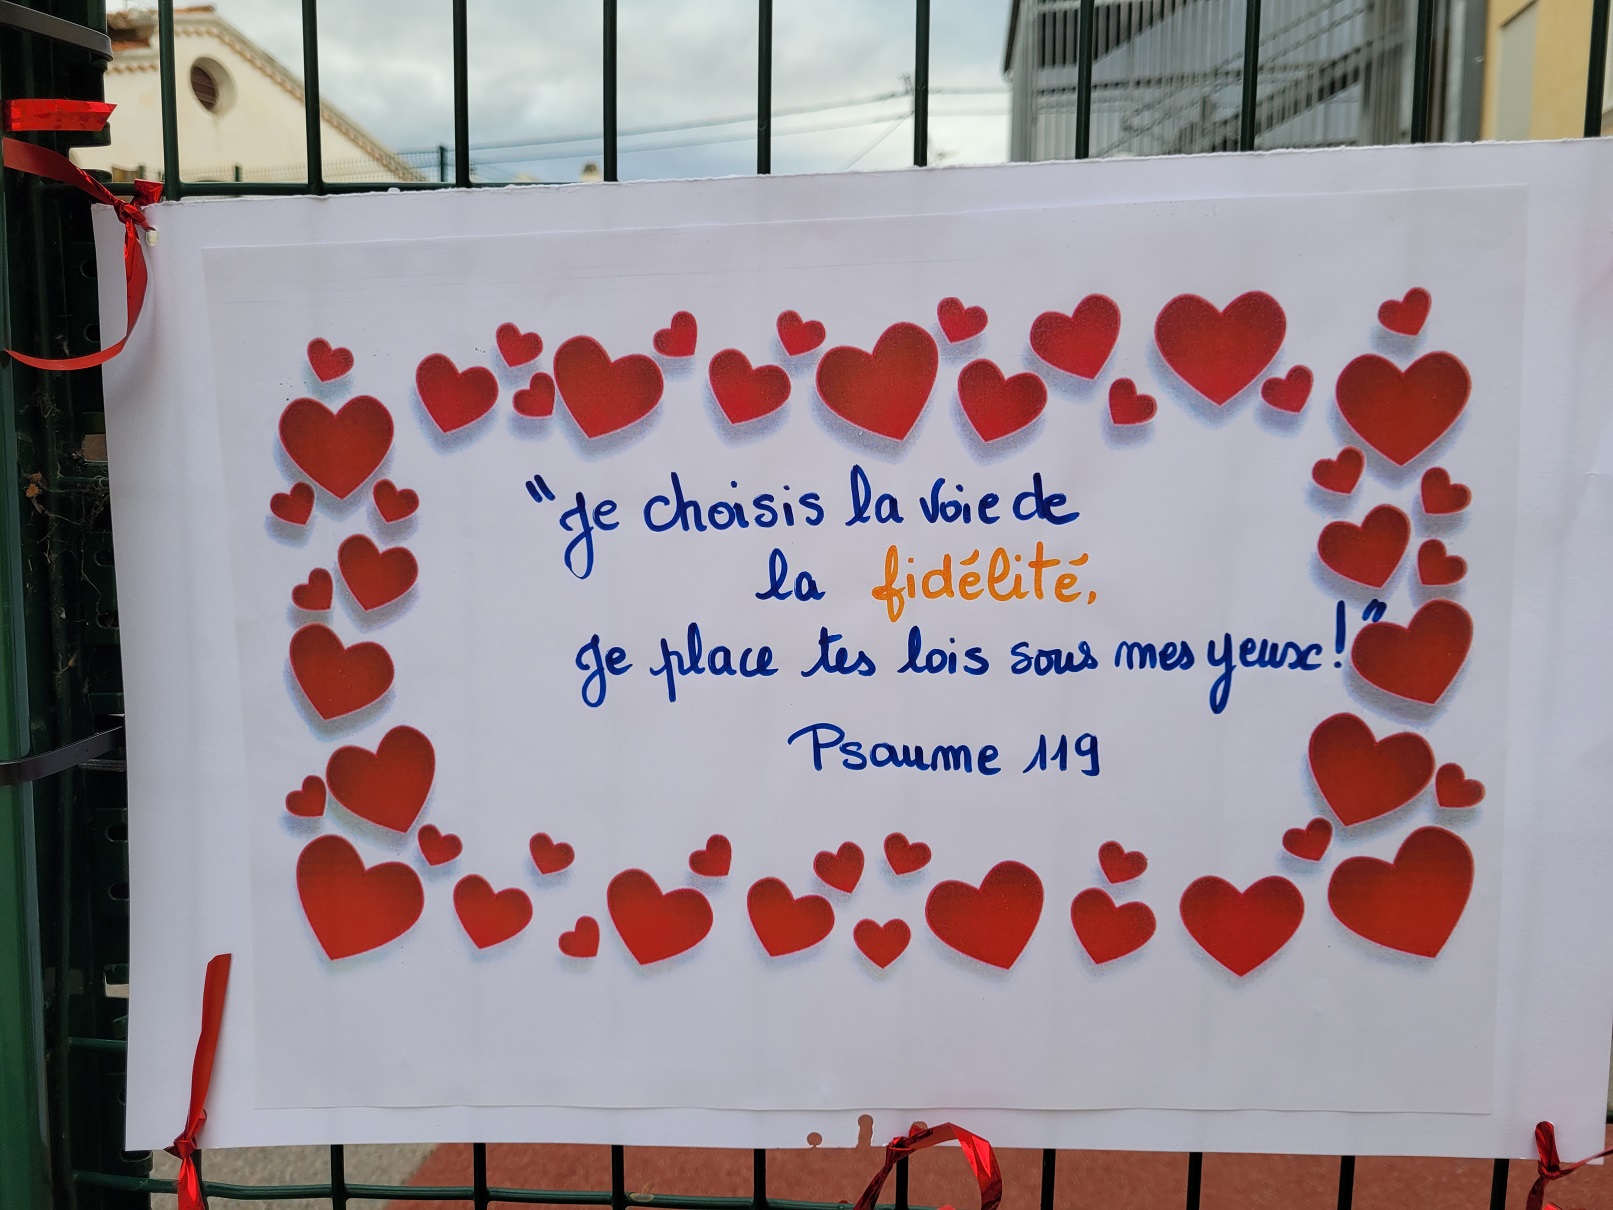 "Je choisis la voie de
la fidélité,
Je place tes lois sous mes yeux!"
Psaume 119